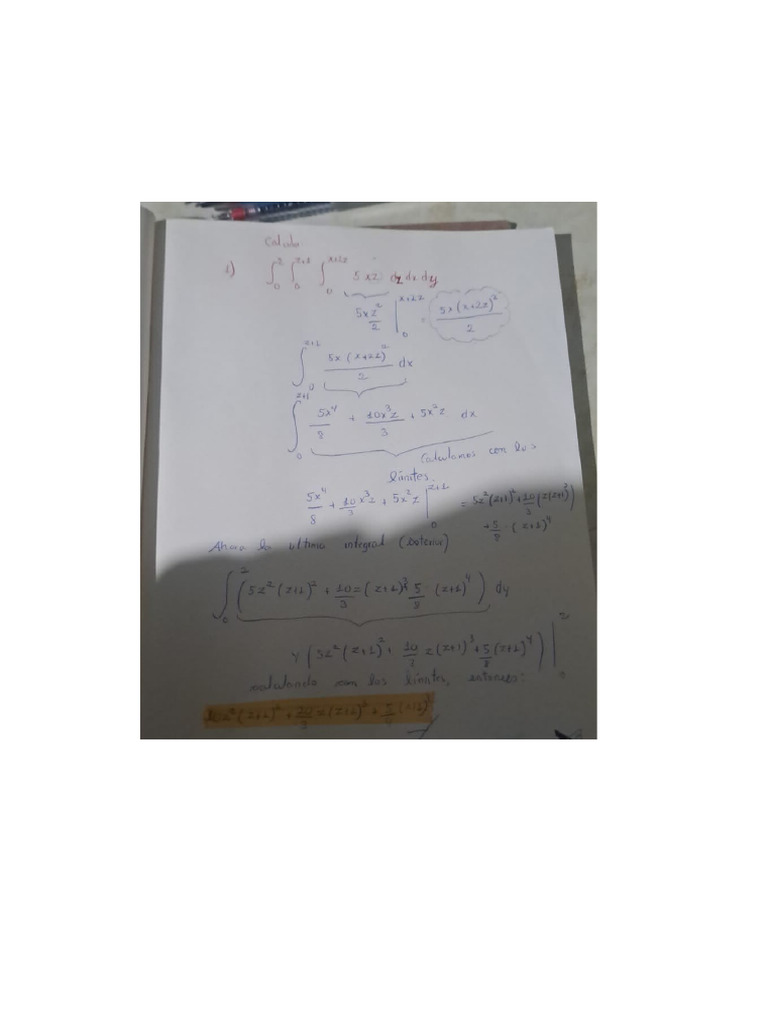 Calculo
1) ∫₀² ∫₀^(z+1) ∫₀^(x+2z) 5xz dz dx dy
5xz²/2 |₀^(x+2z) = 5x(x+2z)²/2
∫₀^(z+1) 5x(x+2z)²/2 dx
∫₀^(z+1) 5x⁴/8 + 10x³z/3 + 5x²z dx
Calculamos con los
límites.
5x⁴/8 + 10/3 x³z + 5x²z |₀^(z+1) = 5z²(z+1)² + 10/3 (z(z+1)³)
+ 5/8 · (z+1)⁴
Ahora la ultima integral (exterior)
∫₀² (5z²(z+1)² + 10/3 z(z+1)³ 5/8 · (z+1)⁴) dy
y (5z²(z+1)² + 10/3 z(z+1)³ + 5/8 (z+1)⁴) |₀²
con los límites, entonces:
10z²(z+1)² + 20/3 z(z+1)³ + 5/4